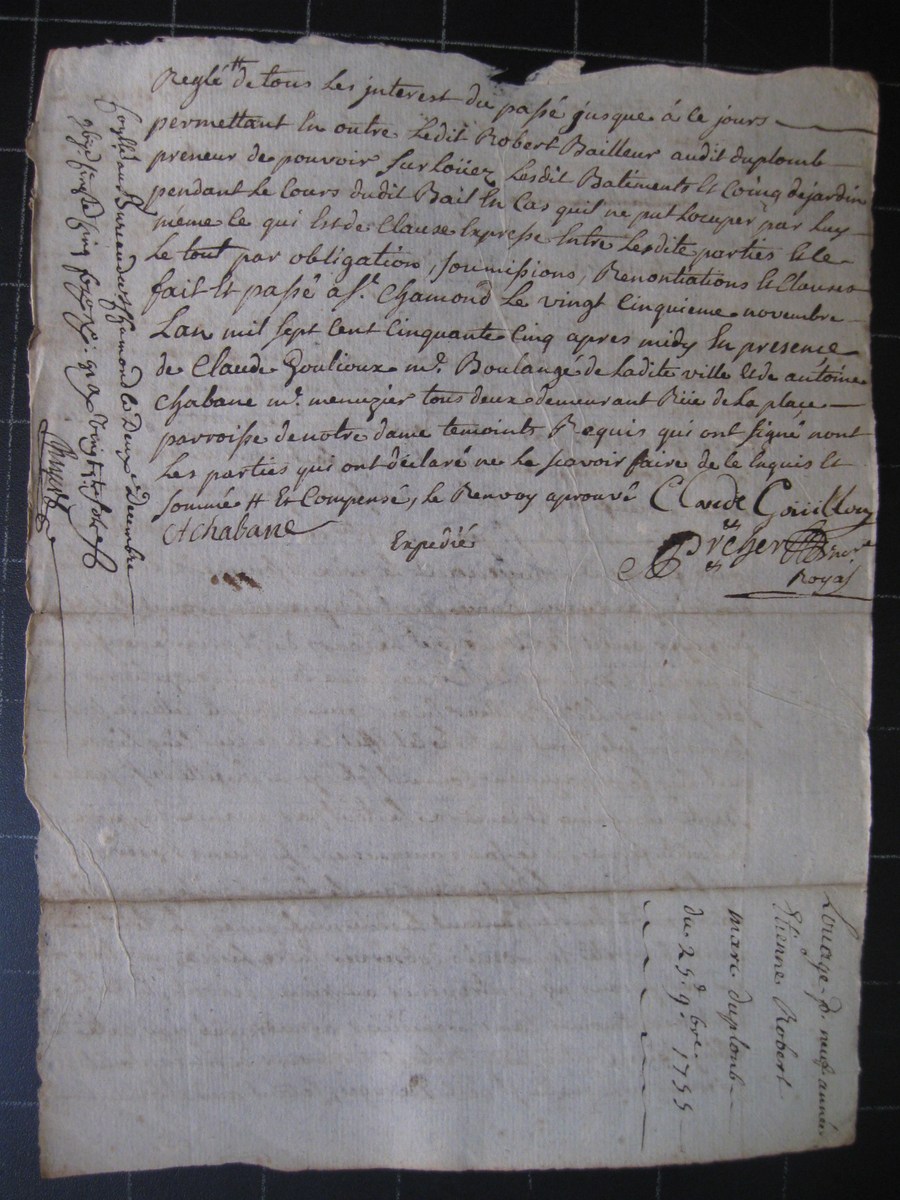 Reglé tt de tous les interest du passé jusque à ce jours
permettant En outre Ledit Robert Bailleur audit duplomb
preneur de pouvoir Surloüez Lesdit Batiments Et Coing dejardin
pendant Le Cours dudit Bail En Cas quil ne put Locuper par Luy
même Ce qui Est de Clause Expresse Entre Lesdite parties
Le tout par obligation, Soumissions, Renontiations Et Clauses
fait Et passé a St. Chamond Le vingt Cinquieme novembre
Lan mil Sept Cent Cinquante Cinq apres midy En presence
de Claude Goulioux md. Boulangé de Ladite ville & de antoine
Chabane md. menuzier tous deux demeurant Rüe de La place
parroisse de notre dame temoints Requis qui ont Signé nont
Les parties qui ont déclaré ne Le Scavoir faire de Ce Enquis Et
Sommée tt Et Compensé, Le Renvoy aprouvé Claude
A chabane
Expedié
Royal
au Bureau de St. Chamond le Deux Decembre
Louage de neuf année
Etienne Robert
marc duplomb
du 25e. 9bre. 1755